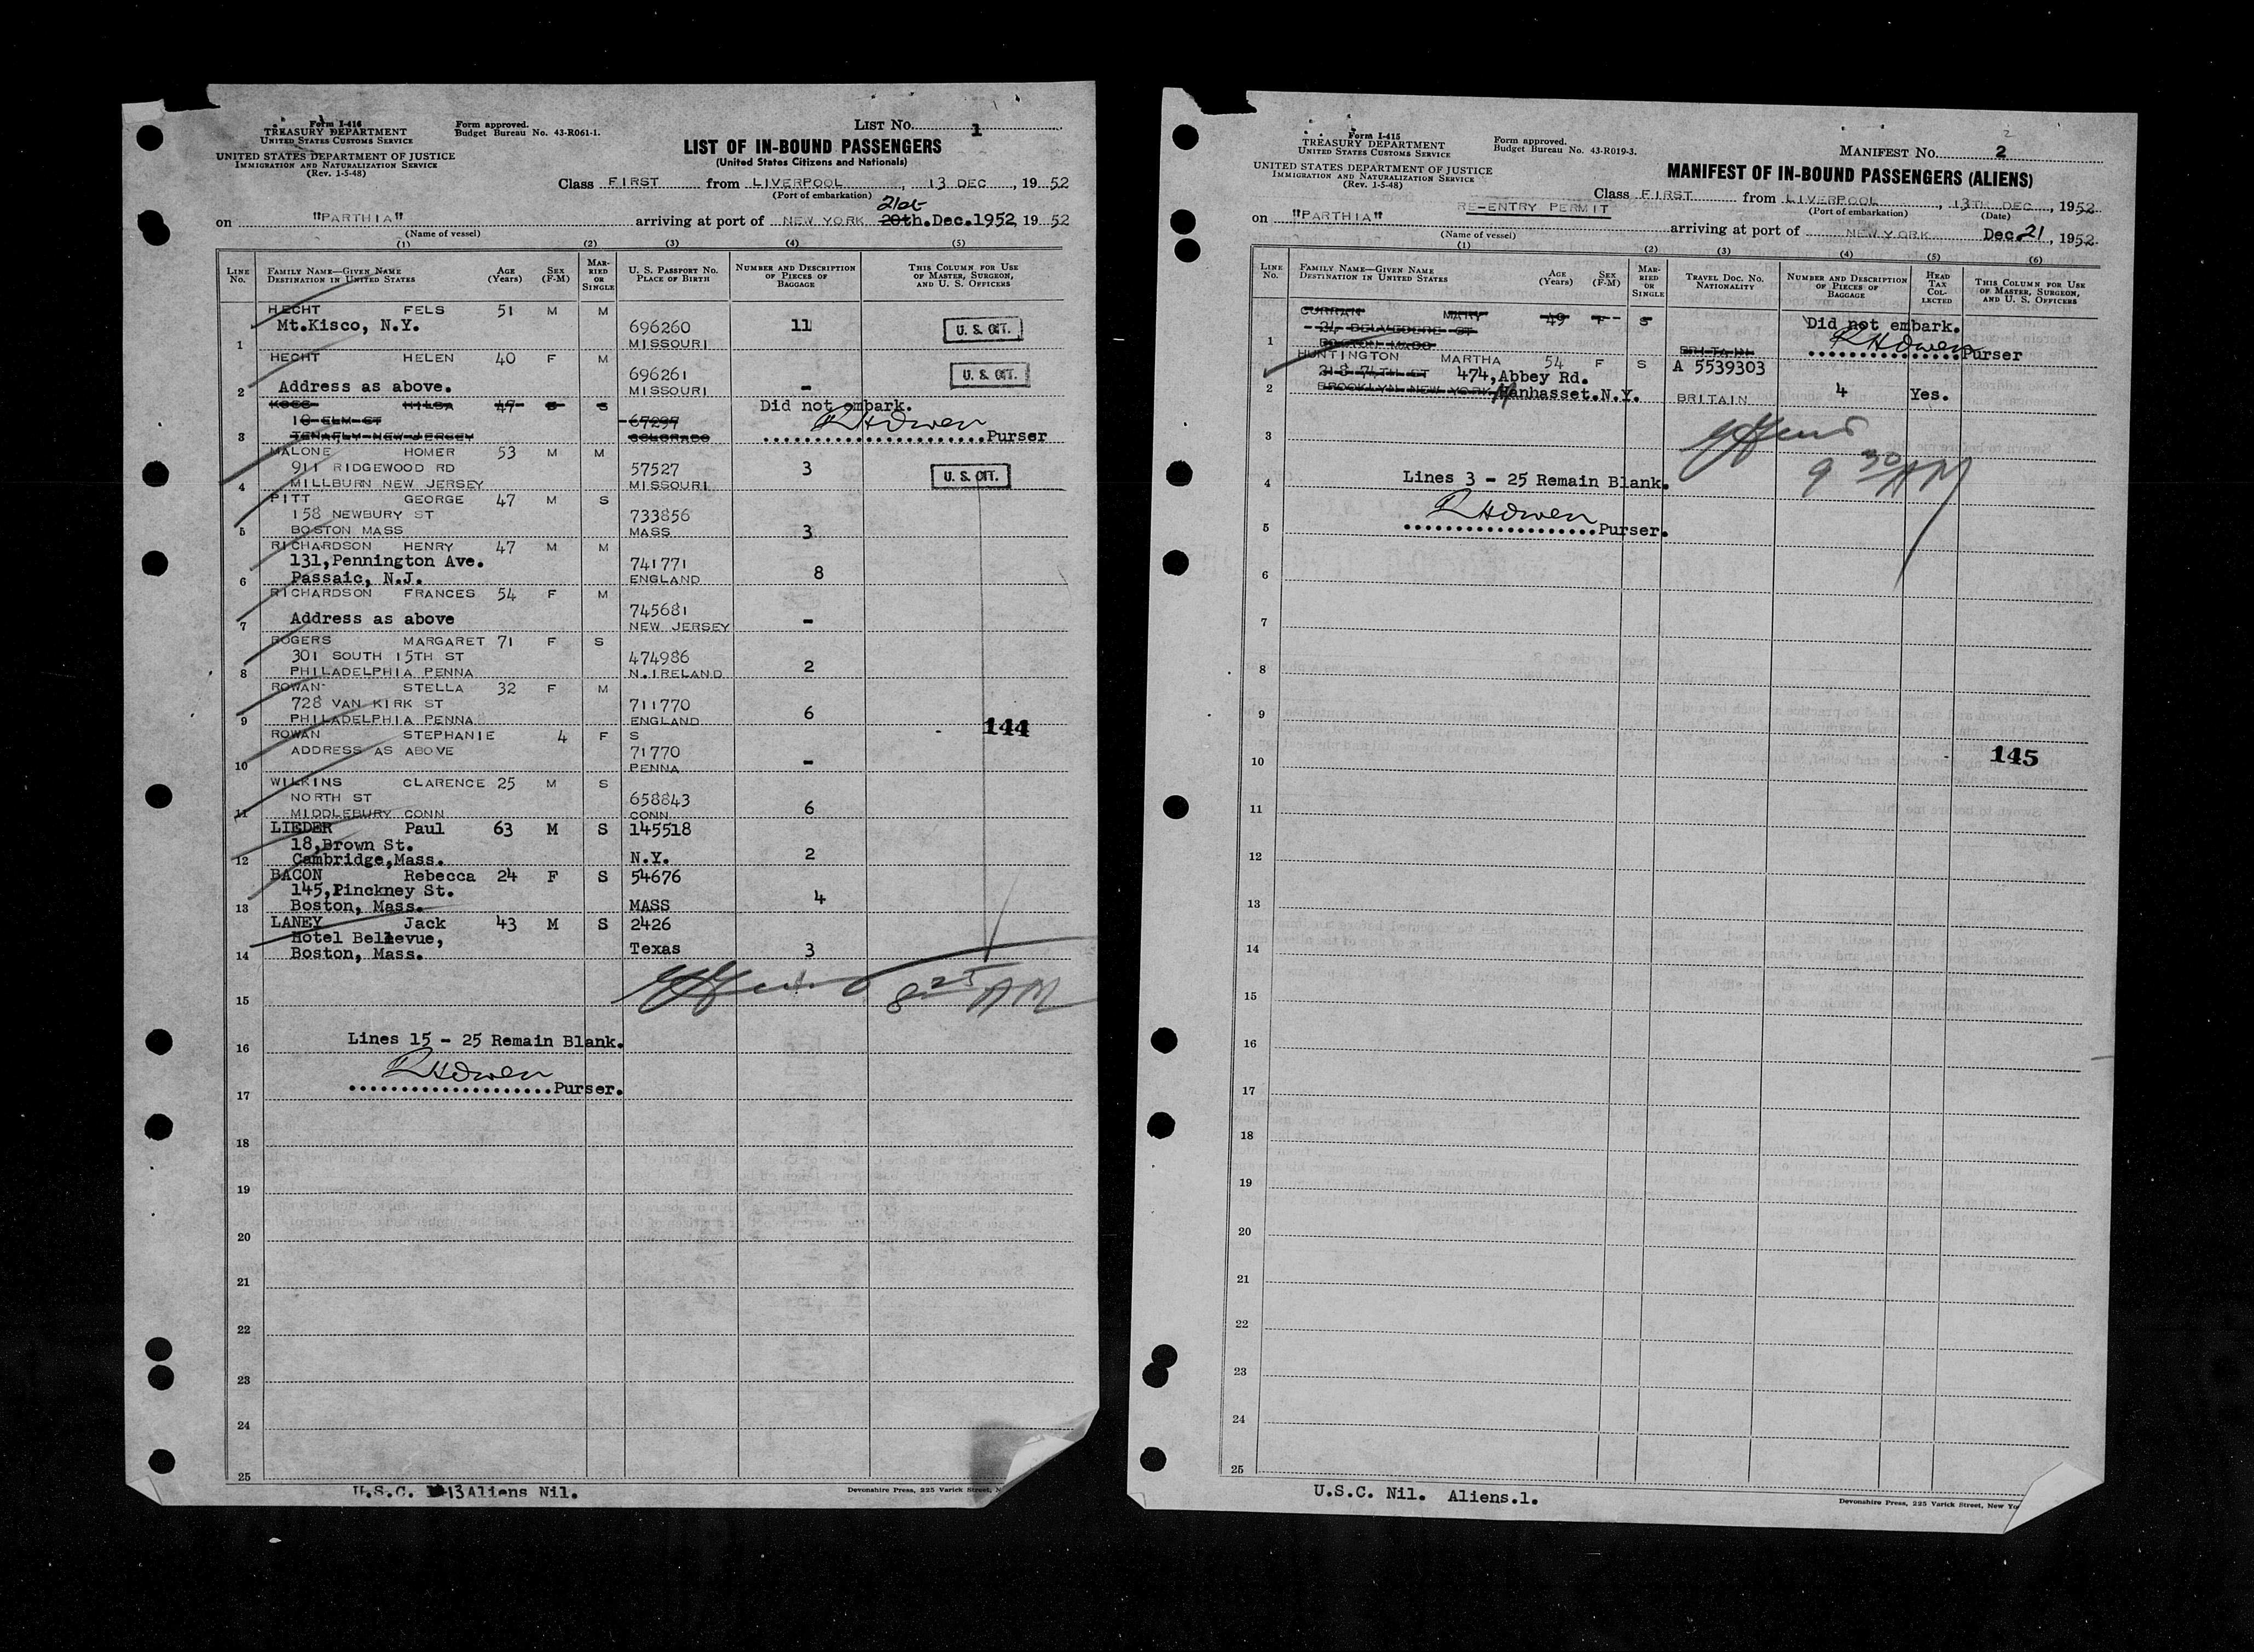 Form I-416
TREASURY DEPARTMENT
UNITED STATES CUSTOMS SERVICE
UNITED STATES DEPARTMENT OF JUSTICE
IMMIGRATION AND NATURALIZATION SERVICE
(Rev. 1-5-48)
Form approved.
Budget Bureau No. 43-R061-1.
LIST NO. 1
LIST OF IN-BOUND PASSENGERS
(United States Citizens and Nationals)
Class FIRST from LIVERPOOL, 13 DEC, 1952
(Port of embarkation)
21st
on "PARTHIA" arriving at port of NEW YORK 20th.Dec.1952, 1952
(Name of vessel)
(1) (2) (3) (4) (5)
LINE NO. FAMILY NAME—GIVEN NAME DESTINATION IN UNITED STATES AGE (Years) SEX (F-M) MARRIED OR SINGLE U. S. PASSPORT NO. PLACE OF BIRTH NUMBER AND DESCRIPTION OF PIECES OF BAGGAGE THIS COLUMN FOR USE OF MASTER, SURGEON, AND U. S. OFFICERS
HECHT FELS 51 M M
Mt.Kisco, N.Y. 696260 11 U. S. CIT.
1 MISSOURI
HECHT HELEN 40 F M
696261 U. S. CIT.
2 Address as above. MISSOURI -
KOSS HILDA 47 S S Did not embark.
10 ELM ST 67297 RHOwen
3 TENAFLY NEW JERSEY COLORADO Purser
MALONE HOMER 53 M M
911 RIDGEWOOD RD 57527 3 U. S. CIT.
4 MILLBURN NEW JERSEY MISSOURI
PITT GEORGE 47 M S
158 NEWBURY ST 733856
5 BOSTON MASS MASS 3
RICHARDSON HENRY 47 M M
131,Pennington Ave. 741771
6 Passaic, N.J. ENGLAND 8
RICHARDSON FRANCES 54 F M
745681
7 Address as above NEW JERSEY -
ROGERS MARGARET 71 F S
301 SOUTH 15TH ST 474986
8 PHILADELPHIA PENNA N.IRELAND 2
ROWAN STELLA 32 F M
728 VAN KIRK ST 711770
9 PHILADELPHIA PENNA ENGLAND 6
144
ROWAN STEPHANIE 4 F S
ADDRESS AS ABOVE 71770
10 PENNA -
WILKINS CLARENCE 25 M S
NORTH ST 658843
11 MIDDLEBURY CONN CONN 6
LIEDER Paul 63 M S 145518
18,Brown St.
12 Cambridge,Mass. N.Y. 2
BACON Rebecca 24 F S 54676
145,Pinckney St.
13 Boston, Mass. MASS 4
LANEY Jack 43 M S 2426
Hotel Bellevue,
14 Boston, Mass. Texas 3
15 8 25 AM
Lines 15 - 25 Remain Blank.
16
RHOwen
Purser.
17
18
19
20
21
22
23
24
25
U.S.C. 13 Aliens Nil.
Devonshire Press, 225 Varick Street, N
Form I-415
TREASURY DEPARTMENT
UNITED STATES CUSTOMS SERVICE
UNITED STATES DEPARTMENT OF JUSTICE
IMMIGRATION AND NATURALIZATION SERVICE
(Rev. 1-5-48)
Form approved.
Budget Bureau No. 43-R019-3.
2
MANIFEST NO. 2
MANIFEST OF IN-BOUND PASSENGERS (ALIENS)
Class FIRST from LIVERPOOL, 13TH DEC, 1952
(Port of embarkation) (Date)
RE-ENTRY PERMIT
on "PARTHIA" arriving at port of NEW YORK Dec.21, 1952
(Name of vessel)
(1) (2) (3) (4) (5) (6)
LINE NO. FAMILY NAME—GIVEN NAME DESTINATION IN UNITED STATES AGE (Years) SEX (F-M) MARRIED OR SINGLE TRAVEL DOC. NO. NATIONALITY NUMBER AND DESCRIPTION OF PIECES OF BAGGAGE HEAD TAX COLLECTED THIS COLUMN FOR USE OF MASTER, SURGEON, AND U. S. OFFICERS
CURRAN MARY 49 F S Did not embark.
24 BELVEDERE ST RHOwen
1 BOSTON MASS BRITAIN Purser
HUNTINGTON MARTHA 54 F S A 5539303
218 74TH ST 474,Abbey Rd.
2 BROOKLYN NEW YORK Manhasset.N.Y. BRITAIN 4 Yes.
3
9 30 AM
4 Lines 3 - 25 Remain Blank.
RHOwen
5 Purser.
6
7
8
9
145
10
11
12
13
14
15
16
17
18
19
20
21
22
23
24
25
U.S.C. Nil. Aliens.1.
Devonshire Press, 225 Varick Street, New Yo